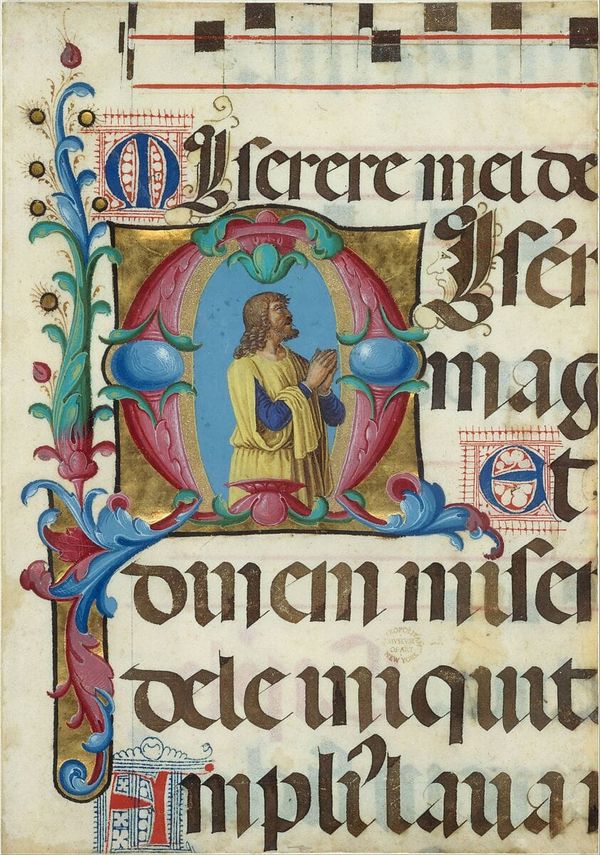 MIserere mei de
MIser
mag
Et
dinem miser
dele iniquit
Ampli' laua
METROPOLITAN
MUSEUM
OF ART
NEW YORK